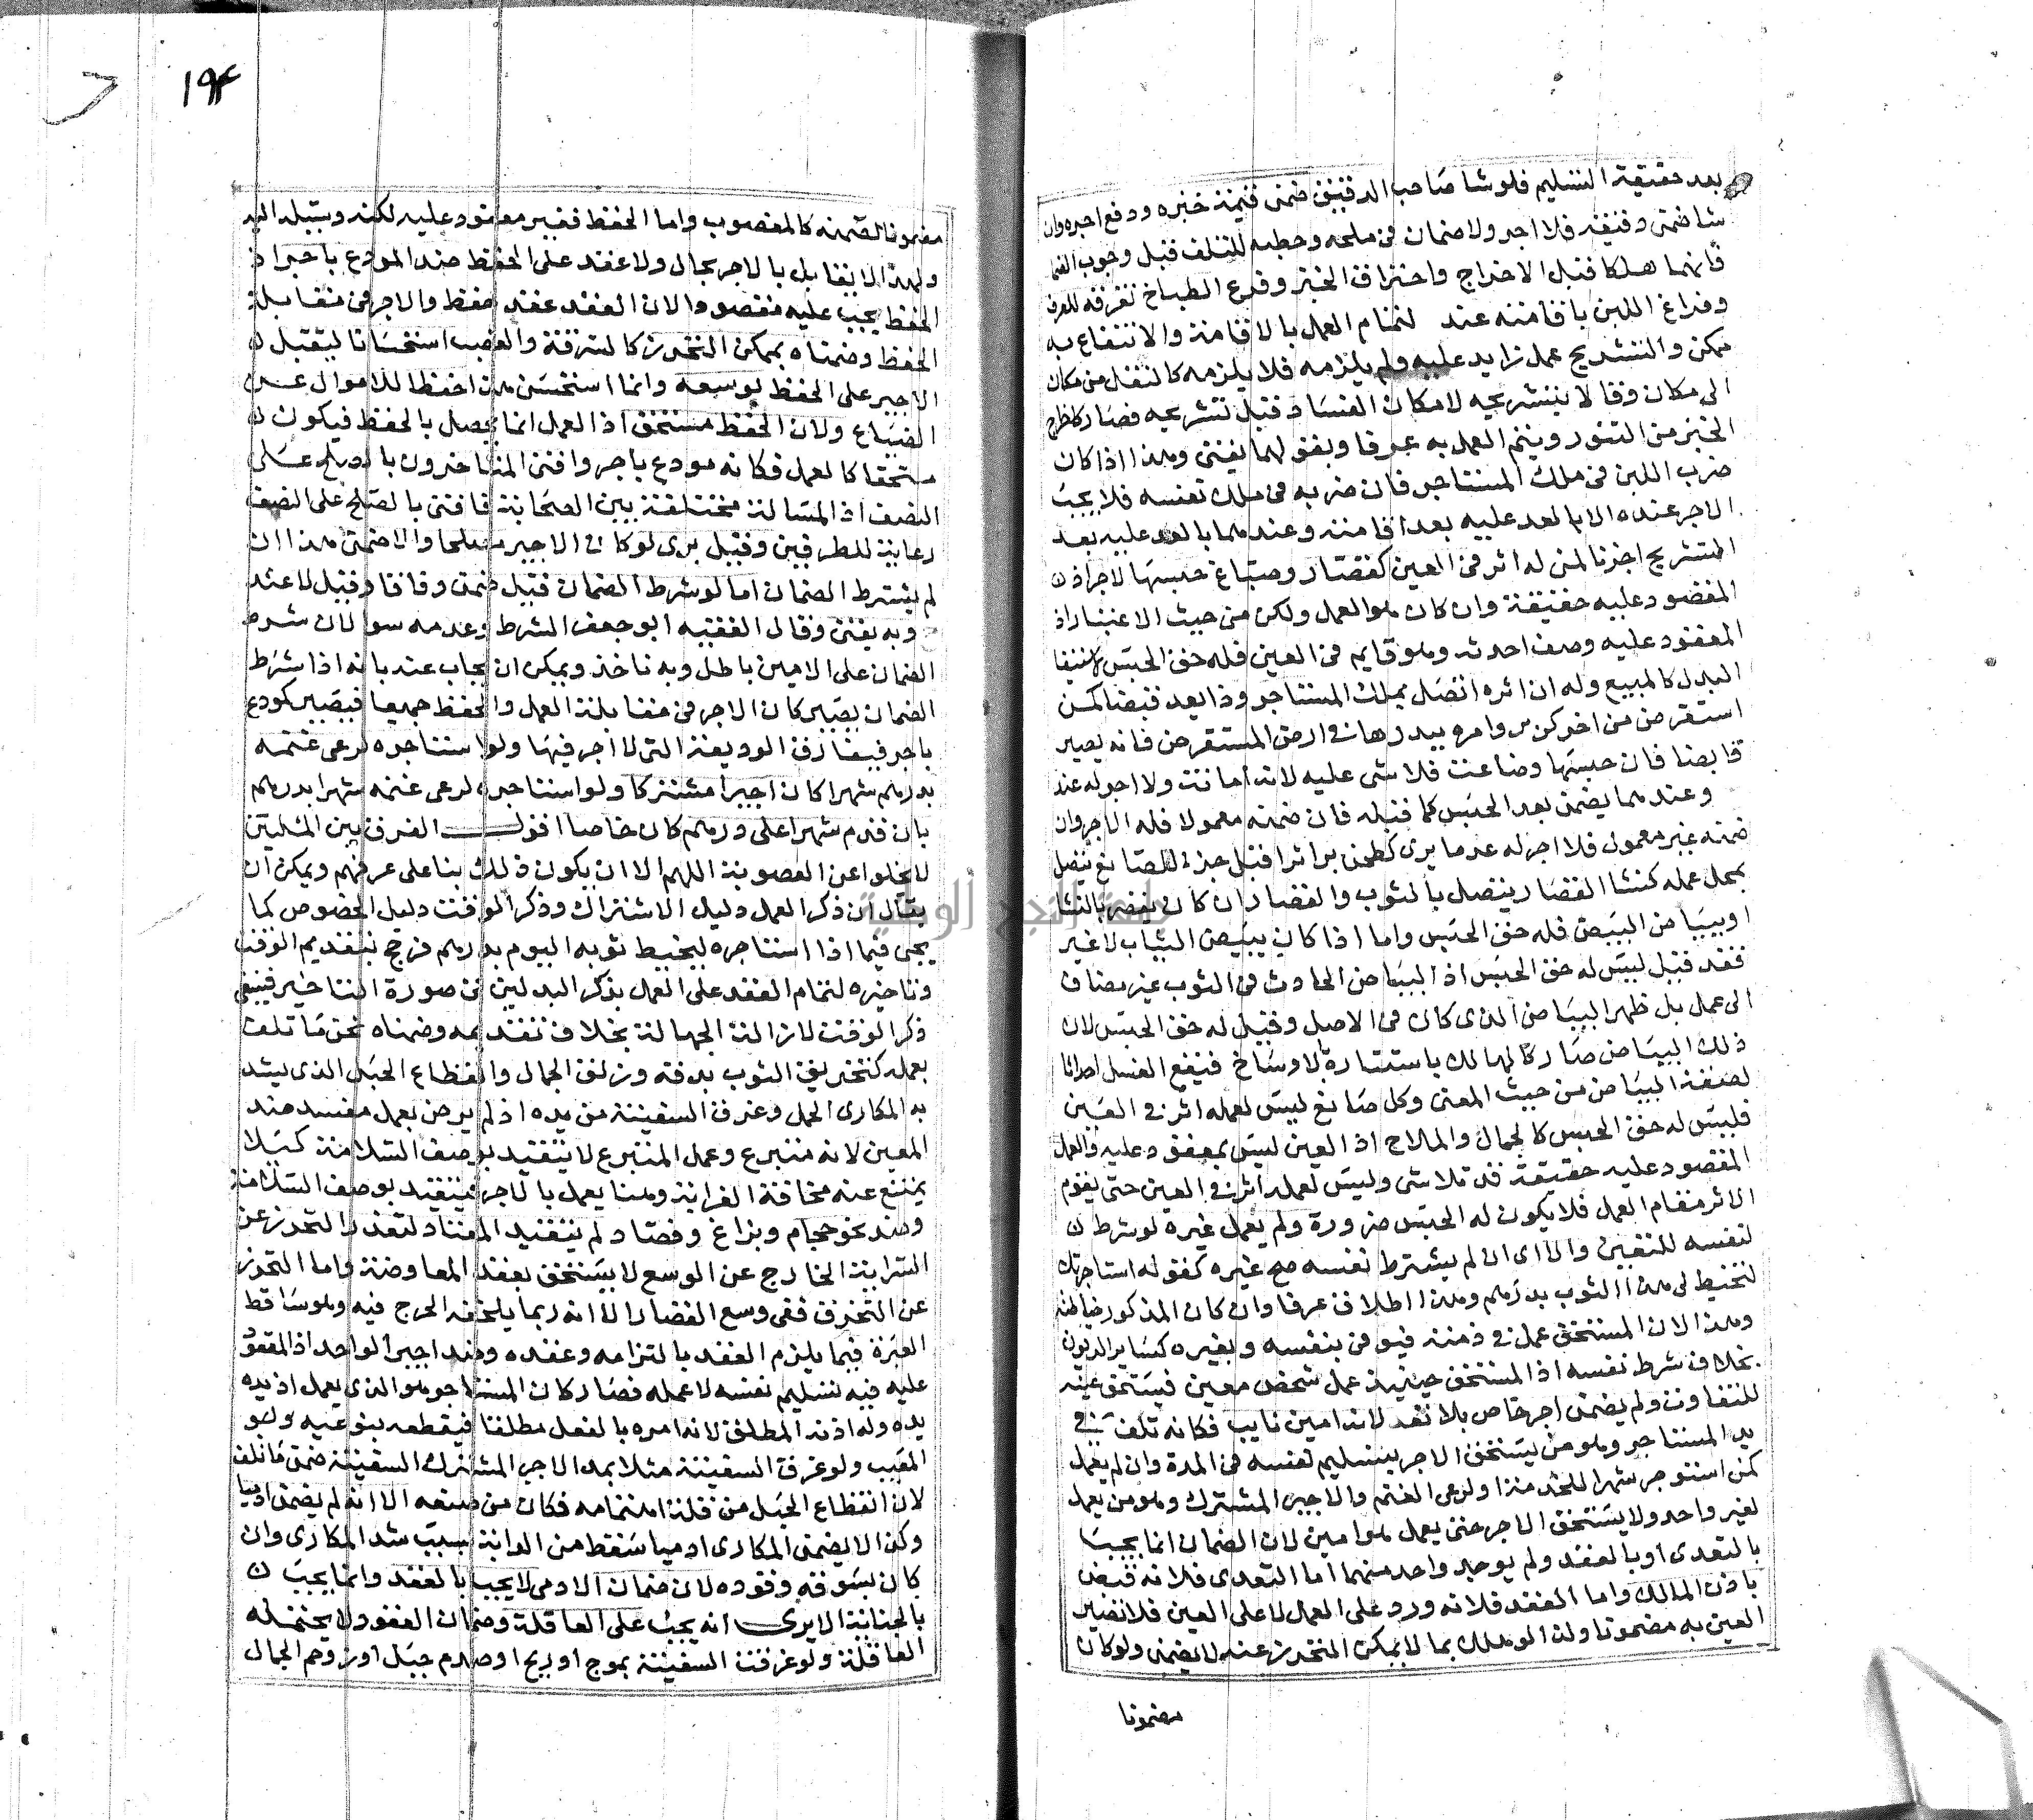 بعد حقيقة التسليم فلو شا صاحب الدقيق ضمن قيمة خبزه ودفع اجره وان
شا ضمن دقيقه فلا اجر ولا ضمان في ملحه وحطبه للتلف قبل وجوب الضما
فانهما هلكا قبل الاخراج واحترا في الخبز وفرغ الطباخ بغرفه للعرف
وفراغ اللبن باقامته عند لتمام العمل بالاقامة والانتفاع به
ممكن والتشريج عمل زايد عليه ولم يلزمه فلا يلزمه كالنقل من مكان
الى مكان وقالا بتشريجه لامكان الفساد قبل تشريجه فصار كاخراج
الخبز من التنور ويتم العمل به عرفا وبقولهما يفتى وهذا اذا كان
ضرب اللبن في ملك المستاجر فان ضربه في ملك نفسه فلا يجب
الاجر عنده الا بالعد عليه بعد اقامته وعندهما بالعد عليه بعد
التشريج اجزنا لمن له اثر في العين كقصار وصباغ حبسها لاجر اذ
المقصود عليه حقيقة وان كان هو العمل ولكن من حيث الاعتبار اذ
المعقود عليه وصف احدثه وهو قايم في العين فله حق الحبس لاستيفا
البدل كالمبيع وله ان اثره اتصل بملك المستاجر وذا يعد قبضا كمن
استقرض من اخر كر بر وامره ببذرها في ارض المستقرض فانه يصير
قابضا فان حبسها وضاعت فلا شى عليه لانه امانت ولا اجر له عند
وعندهما يضمن بعد الحبس كما قبله فان ضمنه معمولا فله الاجر وان
ضمنه غير معمول فلا اجر له عدما يرى كطحن بر اثرا قيل جزء للصانع يتصل
بمحل عمله كنشا القصار يتصل بالثوب والقصار ان كان يقصر بالنشا
او بياض البيض فله حق الحبس واما اذا كان يبيض الثياب لا غير
فقد قيل ليس له حق الحبس اذ البياض الحادث في الثوب غير مضاف
الى عمل بل ظهر البياض الذى كان في الاصل وقيل له حق الحبس لان
ذلك البياض صار كالهالك باستتاره بالاوساخ فيقع الغسل احداثا
لصفة البياض من حيث المعنى وكل صانع ليس لعمله اثر في العين
فليس له حق الحبس كالجمال والملاح اذ العين ليس بمعقود عليه والعمل
المقصود عليه حقيقة قد تلاشى وليس لعمله اثر في العين حتى يقوم
الاثر مقام العمل فلا يكون له الحبس ضرورة ولم يعمل غيره لو شرط
لنفسه للتعيين والا اى ان لم يشترط نفسه صح غيره كقوله استاجرتك
لتخيط لى هذا الثوب بدرهم وهذا اطلاق عرفا وان كان المذكور خياطته
وهذا لان المستحق عمل في ذمته فيوفى بنفسه وبغيره كساير الديون
بخلاف شرط نفسه اذ المستحق حينيذ عمل شخص معين فيستحق عينه
للتفاوت ولم يضمن اجر خاص بلا تعد لانه امين نايب فكانه تلف في
يد المستاجر وهو من يستحق الاجر بتسليم نفسه في المدة وان لم يعمل
كمن استوجر شهرا للخدمة او لرعى الغنم والاجير المشترك وهو من يعمل
لغير واحد ولا يستحق الاجر حتى يعمل هو امين لان الضمان انما يجب
بالتعدى او بالعقد ولم يوجد واحد منهما اما التعدى فلانه قبض
باذن المالك واما العقد فلانه ورد على العمل لا على العين فلا تصير
العين به مضمونا ولذا لو هلك بما لا يمكن التحرز عنه لا يضمن ولو كان
مضمونا
١٩٤
مضمونا لضمنه كالمغصوب واما الحفظ فغير معقود عليه لكنه وسيلة اليه
ولهذا لا يقابل بالاجر بحال ولا عقد على الحفظ ضد المودع باجر اذ
الحفظ يجب عليه مقصودا لان العقد عقد حفظ والاجر في مقابلة
الحفظ وضمناه بممكن التحرز كالسرقة والغصب استحسانا ليتقبل
الاجير على الحفظ بوسعه وانما استحسن هذا حفظا للاموال عن
الضياع ولان الحفظ مستحق اذ العمل انما يحصل بالحفظ فيكون
مستحقا كالعمل فكانه مودع باجر وافتى المتاخرون بالصلح على
النصف اذ المسالة مختلفة بين الصحابة فافتى بالصلح على النصف
رعاية للطرفين وقيل برى لو كان الاجير مصلحا والا ضمن هذا ان
لم يشترط الضمان اما لو شرط الضمان قيل ضمن وفاقا وقيل لا عند
وبه يفتى وقال الفقيه ابو جعفر الشرط وعدمه سوا لان شرط
الضمان على الامين باطل وبه ناخذ ويمكن ان يجاب عنه بانه اذا شرط
الضمان يصير كان الاجر في مقابلة العمل والحفظ جميعا فيصير كمودع
باجر فيفارق الوديعة التى لا اجر فيها ولو استاجره لرعى غنمه
بدرهم شهرا كان اجيرا مشتركا ولو استاجره لرعى غنمه شهرا بدرهم
بان قدم شهرا على درهم كان خاصا اقول الفرق بين المثلين
لا يخلوا عن الصعوبة اللهم الا ان يكون ذلك بنا على عرفهم ويمكن ان
يقال ان ذكر العمل دليل الاشتراك وذكر الوقت دليل الخصوص كما
يجى فيما اذا استاجره ليخيط ثوبه اليوم بدرهم فرجح بتقديم الوقت
وتاخيره لتمام العقد على العمل بذكر البدلين في صورة التاخير فيبقى
ذكر الوقت لازالة الجهالة بخلاف تقديمه وضمناه نحن ما تلف
بعمله كتخريق الثوب بدقه وزلق الجمال وانقطاع الحبل الذى يشد
به المكارى الحمل وغرق السفينة من يده اذ لم يرض بعمل مفسد ضد
المعين لانه متبرع وعمل المتبرع لا يتقيد بوصف السلامة كيلا
يمتنع عنه مخافة الغرامة وهنا يعمل بالاجر فيتقيد بوصف السلامة
وضد نحو حجام وبزاغ وفصاد لم يتقيد المعتاد لتعذر التحرز عن
السراية الخارج عن الوسع لا يستحق بعقد المعاوضة واما التحرز
عن التخرق ففى وسع القصار الا انه ربما يلحقه الحرج فيه وهو ساقط
العبرة فيما يلزم العقد بالتزامه وعقده وضد اجير الواحد اذ المعقود
عليه فيه تسليم نفسه لا عمله فصار كان المستاجر هو الذى يعمل اذ يده
يده وله اذنه المطلق لانه امره بالفعل مطلقا فيقطعه بنوعيه ولو
المعيب ولو غرق السفينة مثلا بمد الاجير المشترك السفينة ضمن ما تلف
لان انقطاع الحبل من قلة اهتمامه فكان من صنعه الا انه لم يضمن ادميا
وكذا لا يضمن المكارى ادميا سقط من الدابة بسبب شد المكارى وان
كان بسوقه وقوده لان ضمان الادمى لا يجب بالعقد وانما يجب
بالجناية الا يرى انه يجب على العاقلة وضمان العقود لا يحتمله
العاقلة ولو غرقت السفينة بموج او ريح او صدم جبل او زوحم الجمال